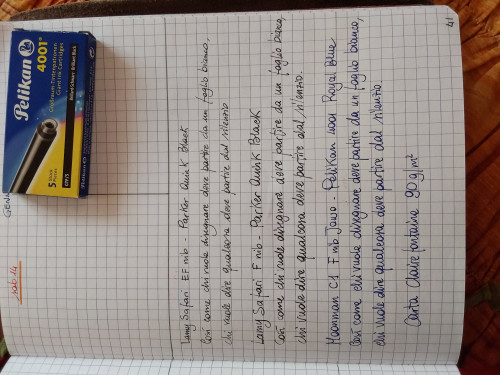 Pelikan
4001
Großraum-Tintenpatronen
Giant Ink Cartridges
Brillant-Schwarz · Brilliant Black
5
GTP/5
sab 14
41
Lamy Safari EF nib - Parker Quink Black
Così come chi vuole disegnare deve partire da un foglio bianco,
chi vuole dire qualcosa deve partire dal silenzio
Lamy Safari F nib - Parker Quink Black
Così come chi vuole disegnare deve partire da un foglio bianco,
chi vuole dire qualcosa deve partire dal silenzio.
Moonman C1 F nib Jowo - Pelikan 4001 Royal Blue
Così come chi vuole disegnare deve partire da un foglio bianco,
chi vuole dire qualcosa deve partire dal silenzio
Carta Clairefontaine 90 g/mt